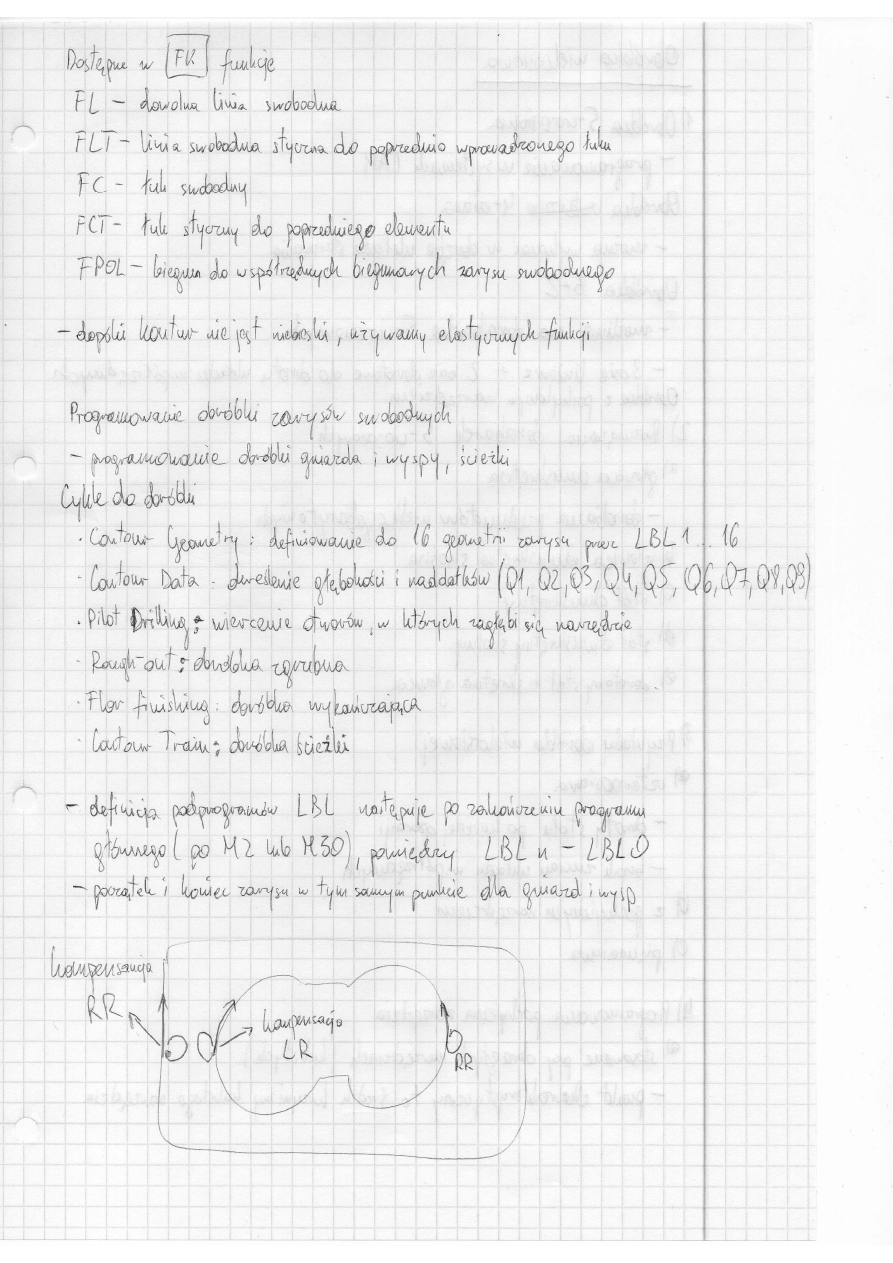 Dostępne w FK funkcje
FL – dowolna linia swobodna
FLT – linia swobodna styczna do poprzednio wprowadzonego łuku
FC – łuk swobodny
FCT – łuk styczny do poprzedniego elementu
FPOL – biegun do współrzędnych biegunowych zarysu swobodnego
– dopóki kontur nie jest niebieski, używamy elastycznych funkcji
Programowanie obróbki zarysów swobodnych
– programowanie obróbki gniazda i wyspy, ścieżki
Cykle do obróbki
· Contour Geometry : definiowanie do 16 geometrii zarysu przez LBL 1...16
· Contour Data : określenie głębokości i naddatków (Q1, Q2, Q3, Q4, Q5, Q6, Q7, Q8, Q9)
· Pilot Drilling : wiercenie otworów, w których zagłębi się narzędzie
· Rough-out : obróbka zgrubna
· Flor finishing : obróbka wykańczająca
· Contour Train : obróbka ścieżki
– definicja podprogramów LBL następuje po zakończeniu programu
głównego (po M2 lub M30), pomiędzy LBL n – LBL0
– początek i koniec zarysu w tym samym punkcie dla gniazd i wysp
kompensacja
RR
kompensacja
LR
RR